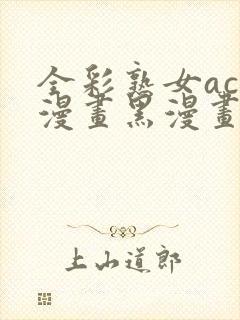 全彩熟女ac
漫畫黑漫畫
上山道郎